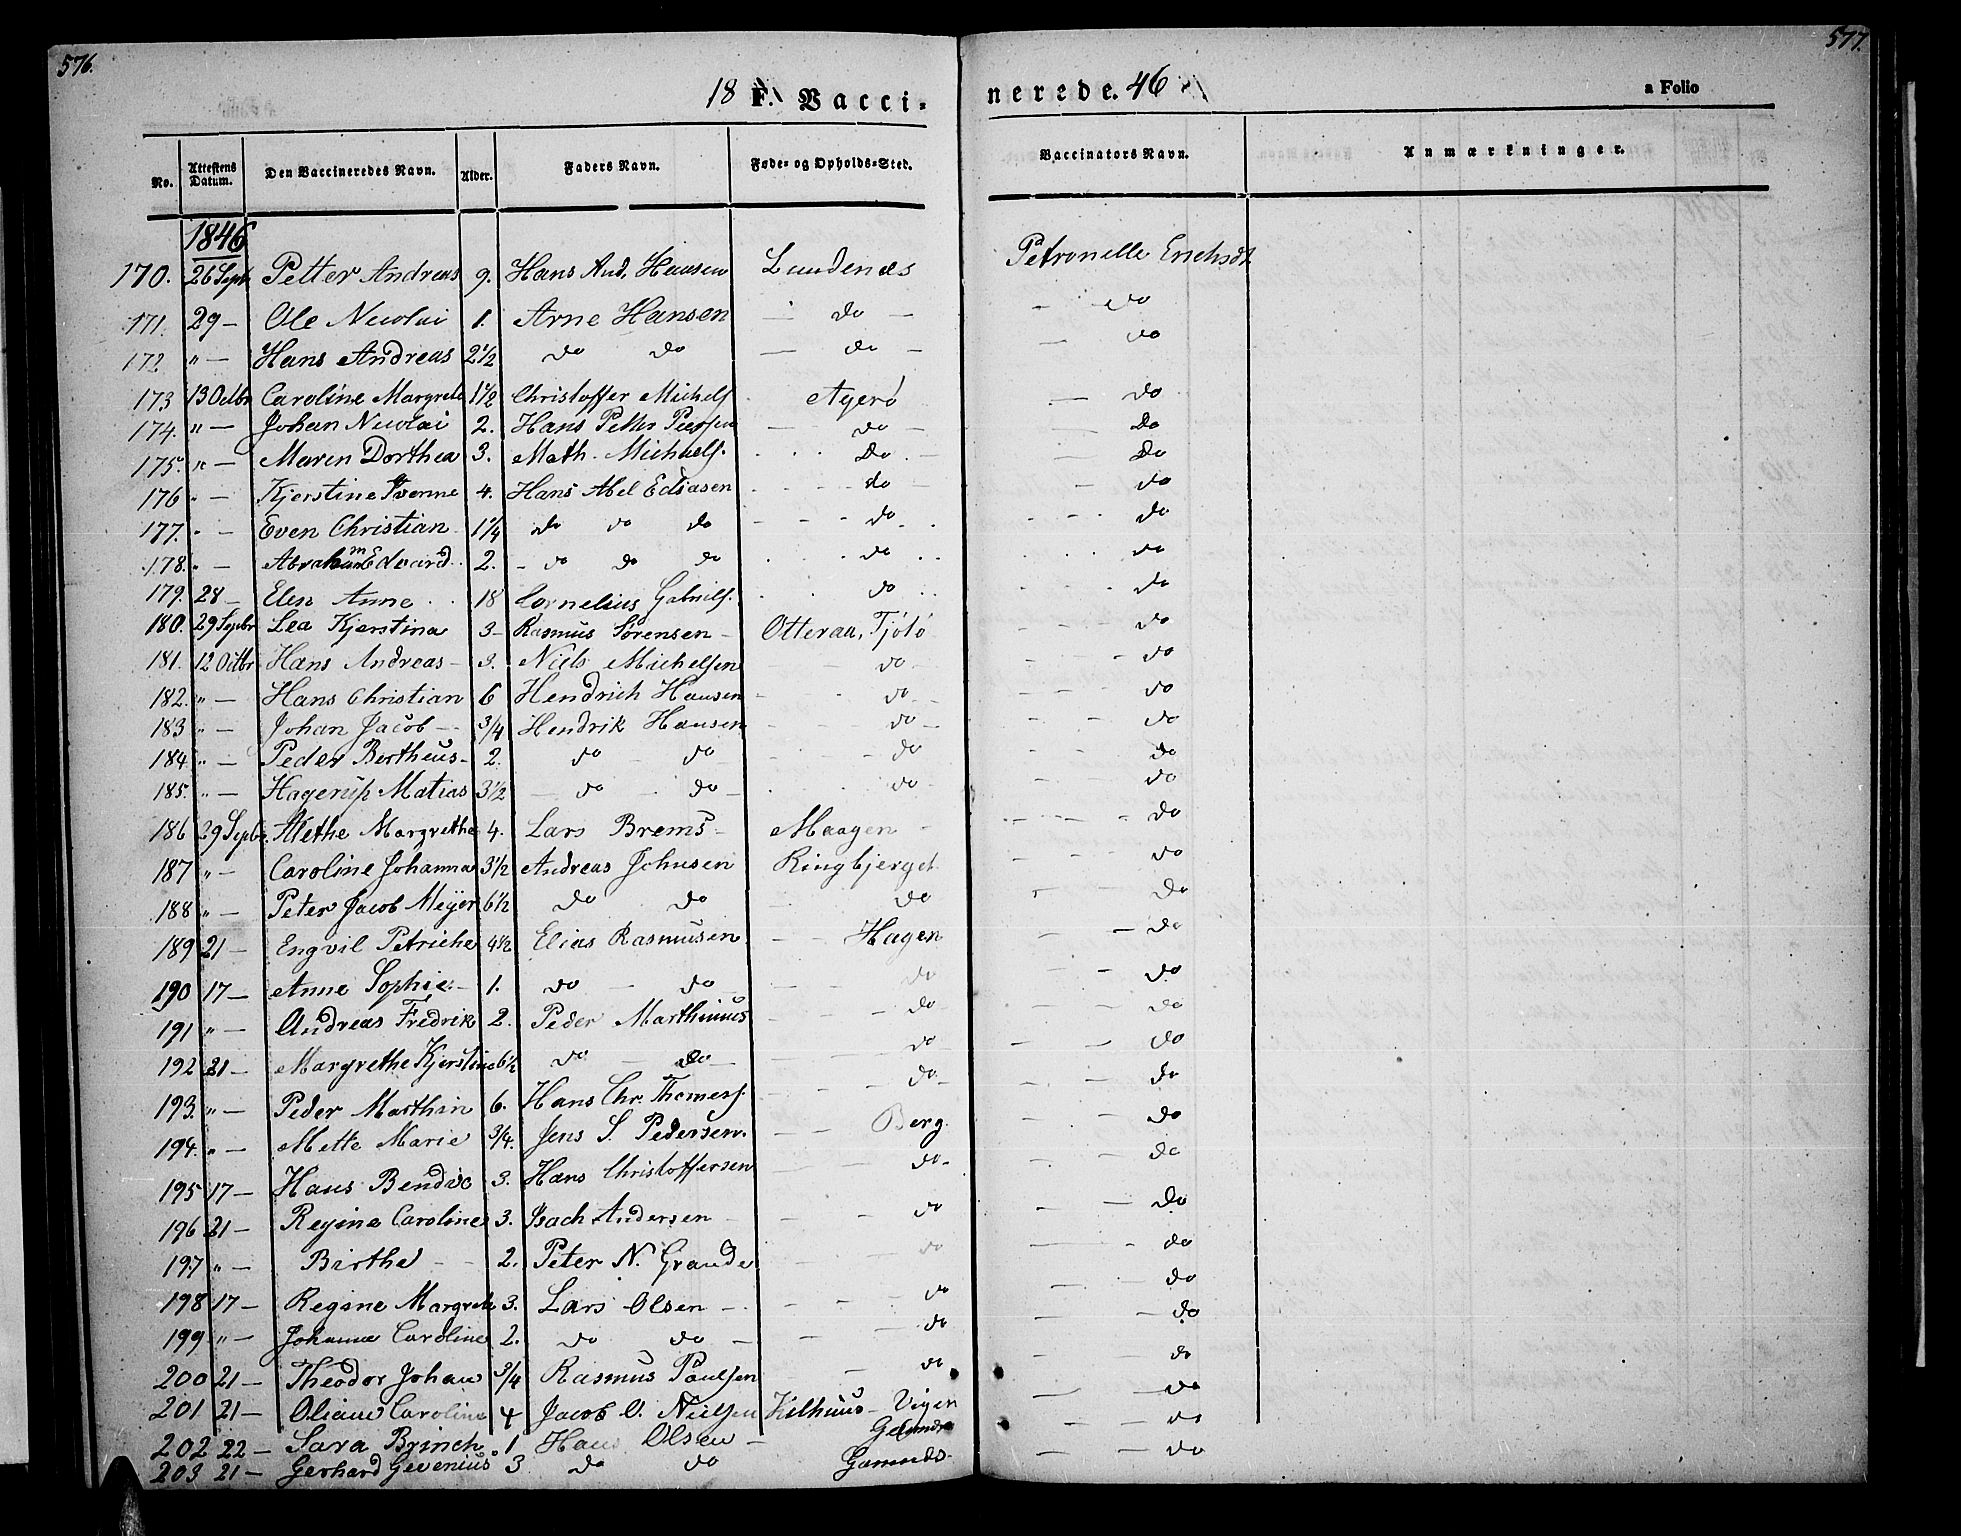 576.
577.
18 F. Vacci- nerede. 46
a Folio
No. Attestens Datum. Den Vaccineredes Navn. Alder. Faders Navn. Føde- og Opholds-Sted. Vaccinators Navn. Anmærkninger.
1846
170. 26 Septb Petter Andreas 9. Hans And. Hansen Lundenæs Petronelle
171. 29 — Ole Nicolai 1. Arne Hansen — do — — do
172 " — Hans Andreas 2½ do do — do — — do
173 13 Octbr Caroline Margrete 1½ Christoffer Michels. Agerø — do
174. " — Johan Nicolai 2. Hans Petter — do — — do
175. " — Maren Dorthea 3. Math. Michaels. do — — do
176 " — Kjerstine 4. Hans Abel do — — do
177. " — Even Christian 1¼ do do do - - - do - - - do
178. " — Abraham Edvard 2. - do do do do do
179. 28 — Elen Anne 18 Cornelius Gabriels. do do
180. 29 Sepbr Lea Kjerstina 3 - Rasmus Sørensen - Otteraa, Tjøtø do
181. 12 Octbr Hans Andreas - 3. Niels Michelsen do - - - do
182. " — Hans Christian 6 Hendrich Hansen - do - - - do
183 " — Johan Jacob - 3/4 Hendrik Hansen do - - - do
184. " — Peder Bertheus - 2. do - do - do - - do
185. " — Hagerup Matias 3½ — do - do - do - - - do
186 29 Sepbr. Alethe Margrethe 4. Lars Brems - Maagen - do
187 " — Caroline Johanna 3½ Andreas Johnsen Ringbjerget - - do
188 " — Peter Jacob Meyer 6½ do do do - - do
189 21 — Engvil Petriche 4½ Elias Rasmusen - - Hagen — - do
190 17 — Anne Sophie - 1. do - do - do - - do
191 " — Andreas Fredrik 2. Peder Marthinus - - - do - - - do
192 21 — Margrethe Kjerstine 6½ do — do — - do - - - do
193. " — Peder Marthin 6. Hans Chr. Thomess. - - - do - - - do
194. " — Mette Marie 3/4. Jens S. Pedersen. - - Berg. - - do
195 17 — Hans Bendix 3. Hans Christoffersen - - do - - - do
196 21 — Regine Caroline 3. Isach Andersen - - - do — - do
197 " — Birthe - - 2. Peter N. Grande - do — - do
198 17 — Regine Margrete 3. Lars Olsen - - - - do — - do
199 " — Johanna Caroline 2. do do - - - do - - do
200 21 — Theodor Johan 3/4 Rasmus Paulsen - do - do
201 21 — Oliane Caroline 4 Jacob O. Nielsen - Vigen - - do
202 22 — Sara Brinch. 1 Hans Olsen - - - do
203 21 — Gerhard Gevenius 3 do do - - do